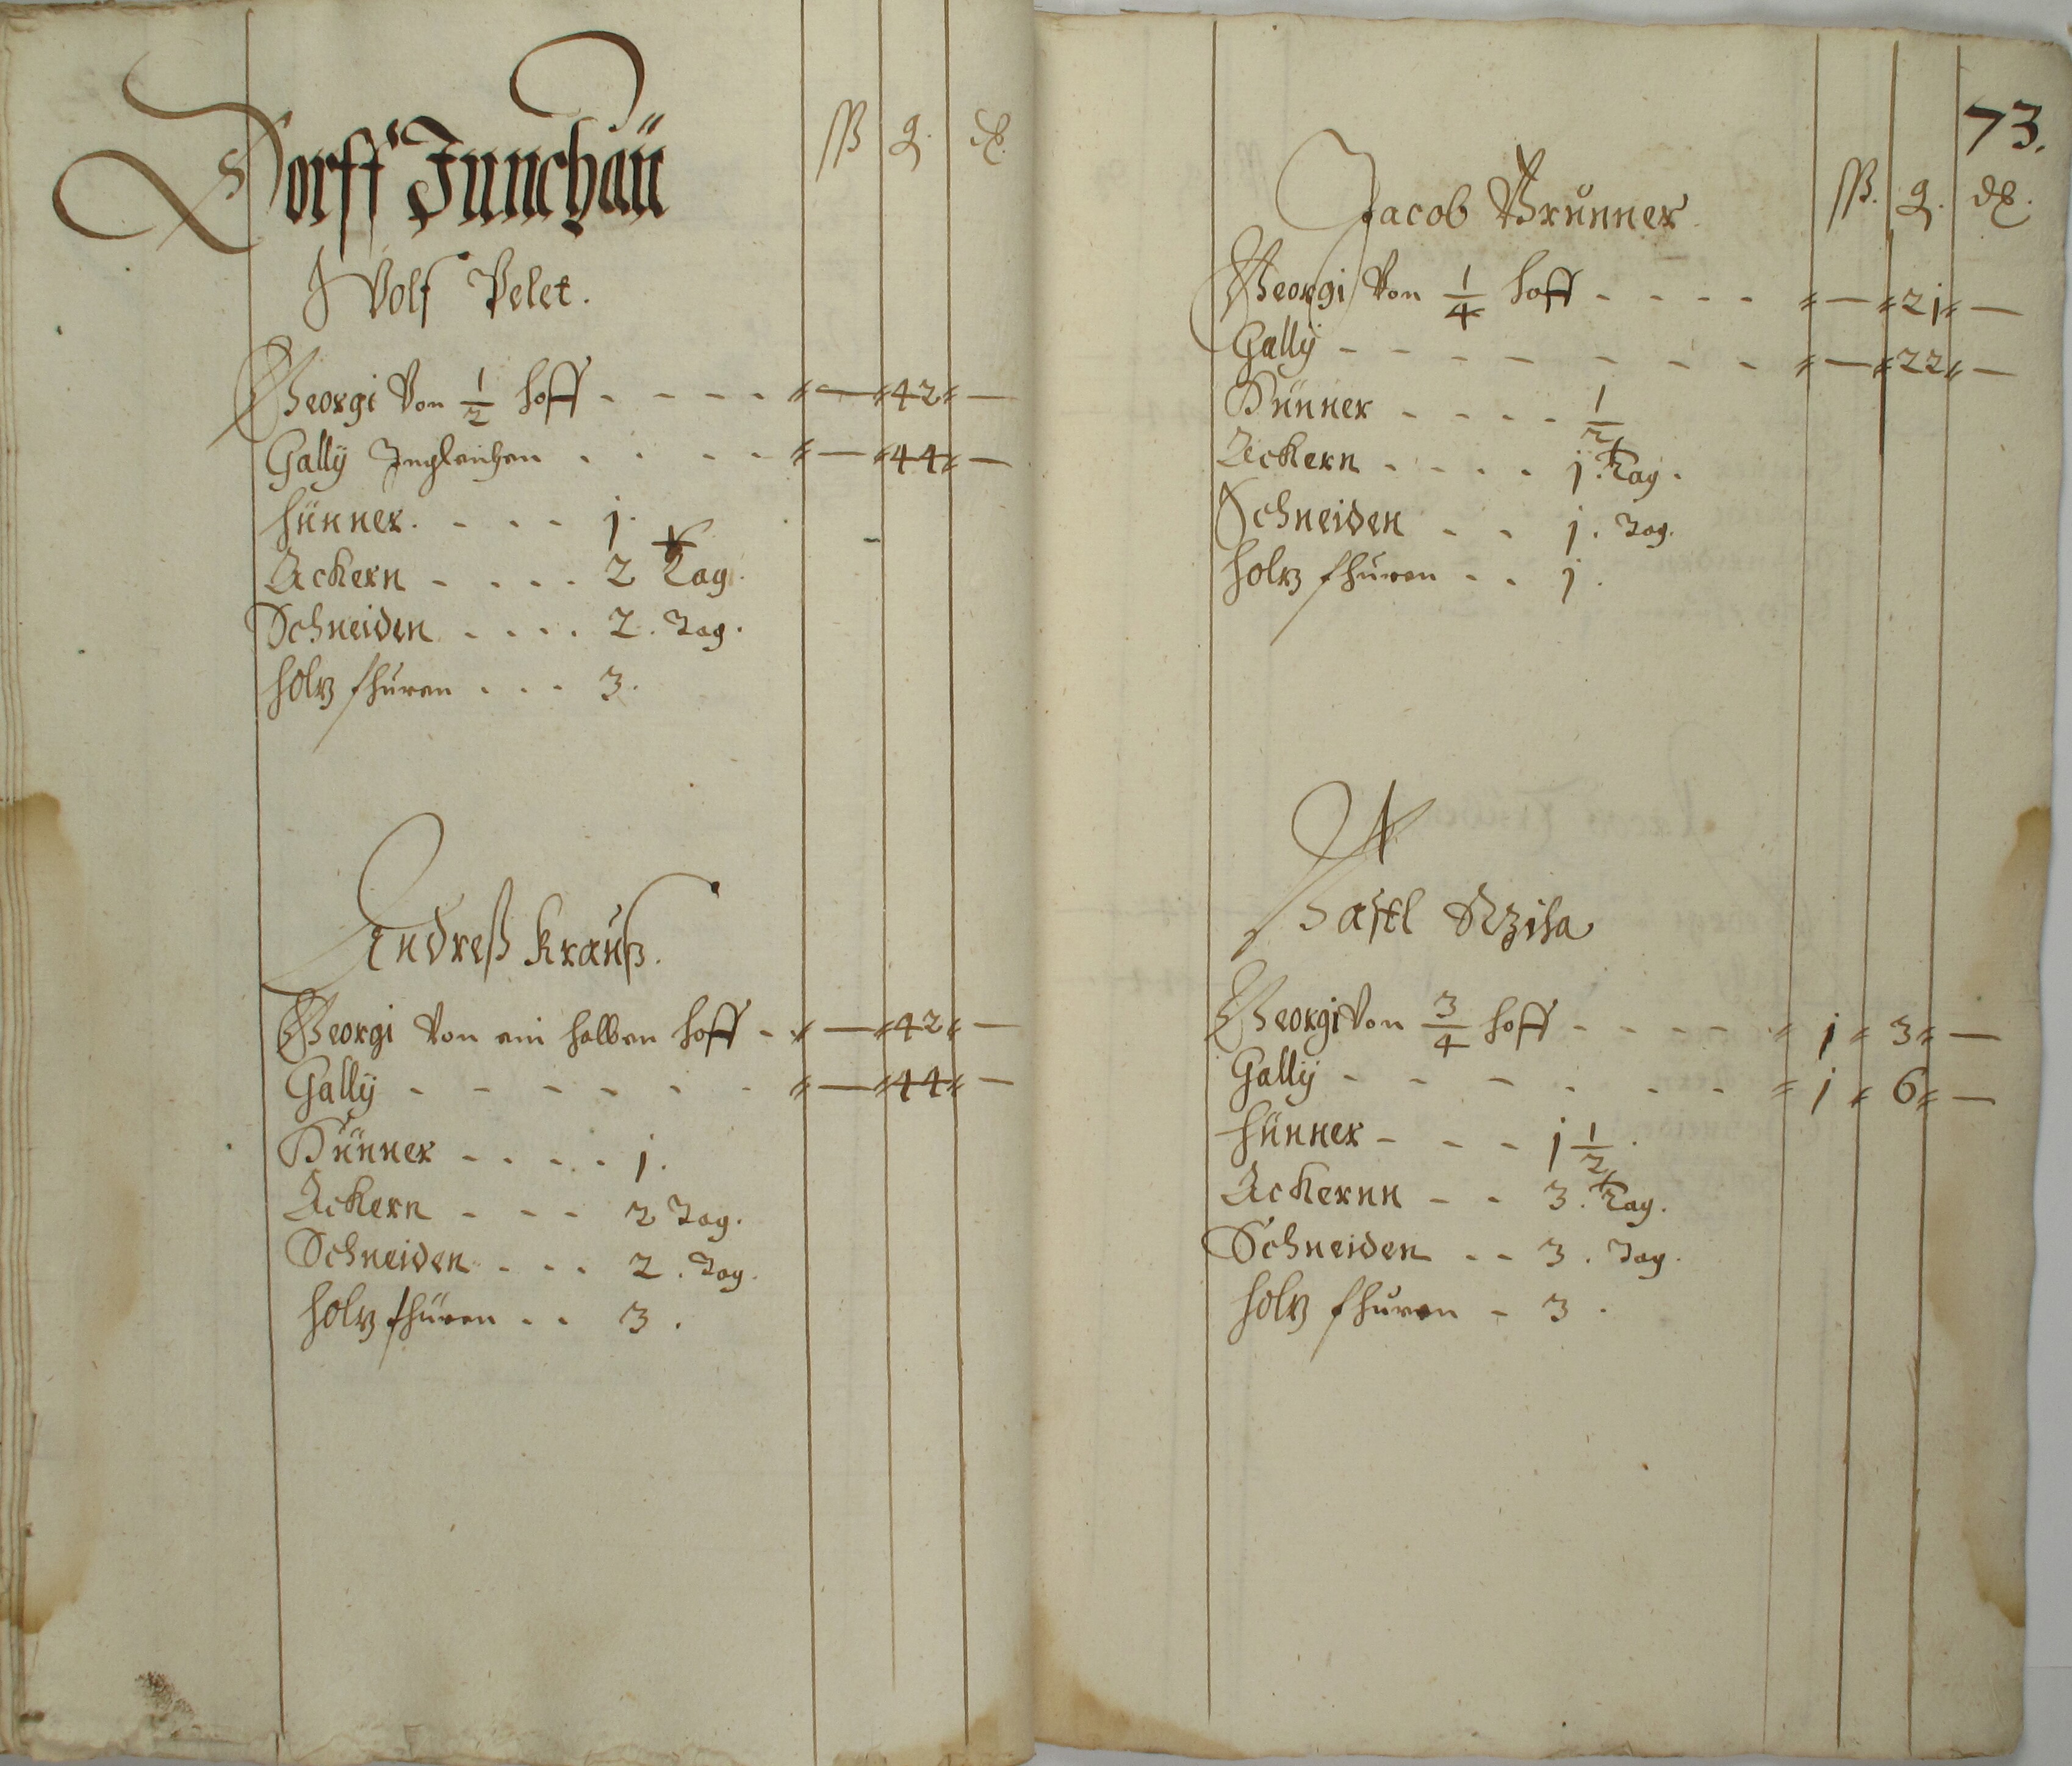 Dorff Junchaü
ſß g. d.
Wolf Pelet.
Georgi Von 1/2 hoff - - - - „ — „ 42 „ —
Gally Ingleichen . . - - „ — „ 44 „ —
hünner. - - - 1.
Ackern - - - - 2 Tag.
Schneiden - - - . 2. Tag.
holtz fhuren . . - 3.
Andreß Krauß.
Georgi Von ein halben hoff - „ — „ 42 „ —
Gally - - - - - - - „ — „ 44 „ —
Hünner - - - - 1.
Ackern - - - 2 Tag.
Schneiden - - - 2. Tag.
holtz fhüren - - 3.
73.
ſß. g. d.
Jacob Brunner
Georgi Von 1/4 hoff - - - - „ — „ 21 „ —
Gally - - - - - - - - „ — „ 22 „ —
Hünner - - - - 1/2
Ackern - - - - 1. Tag.
Schneiden - - 1. Tag.
holtz fhuren - - 1.
Bastl
Georgi Von 3/4 hoff - - - - - „ 1 „ 3 „ —
Gally - - - - - - - „ 1 „ 6 „ —
hünner - - - 1 1/2.
Ackernn - - 3. Tag.
Schneiden - - 3. Tag.
holtz fhuren - 3.